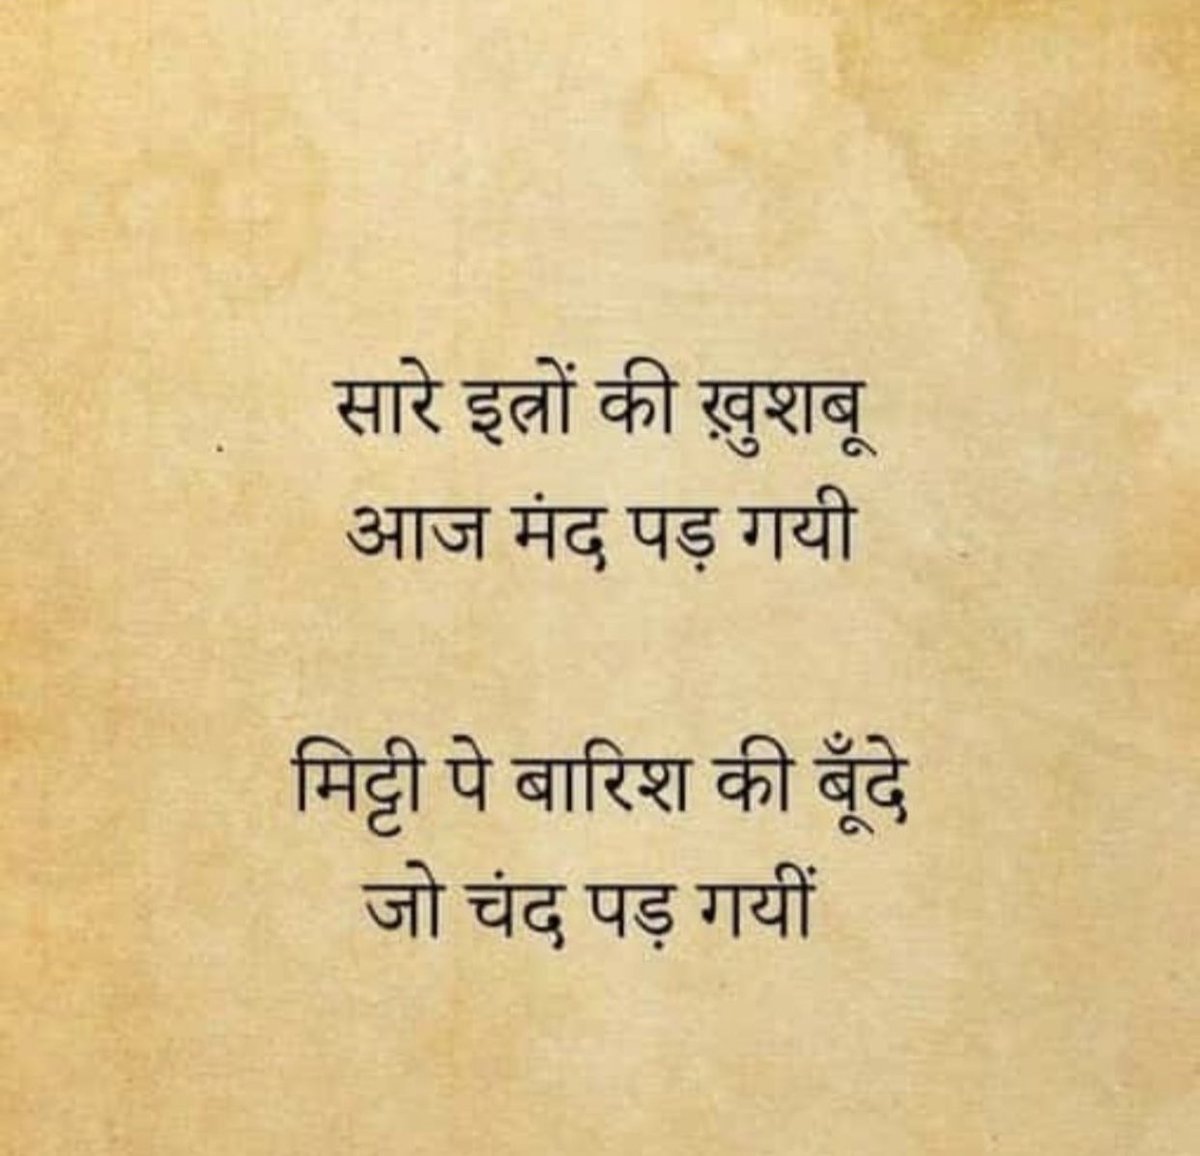 सारे इत्रों की ख़ुशबू
आज मंद पड़ गयी
मिट्टी पे बारिश की बूँदे
जो चंद पड़ गयीं